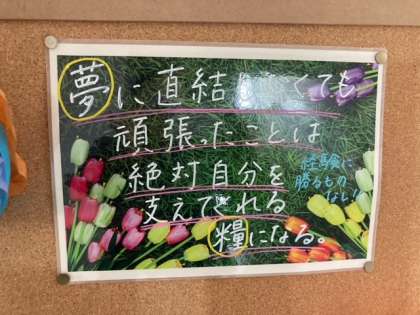 夢に直結しなくても
頑張ったことは
絶対自分を
支えてくれる
糧になる。
経験に
勝るもの
なし!!